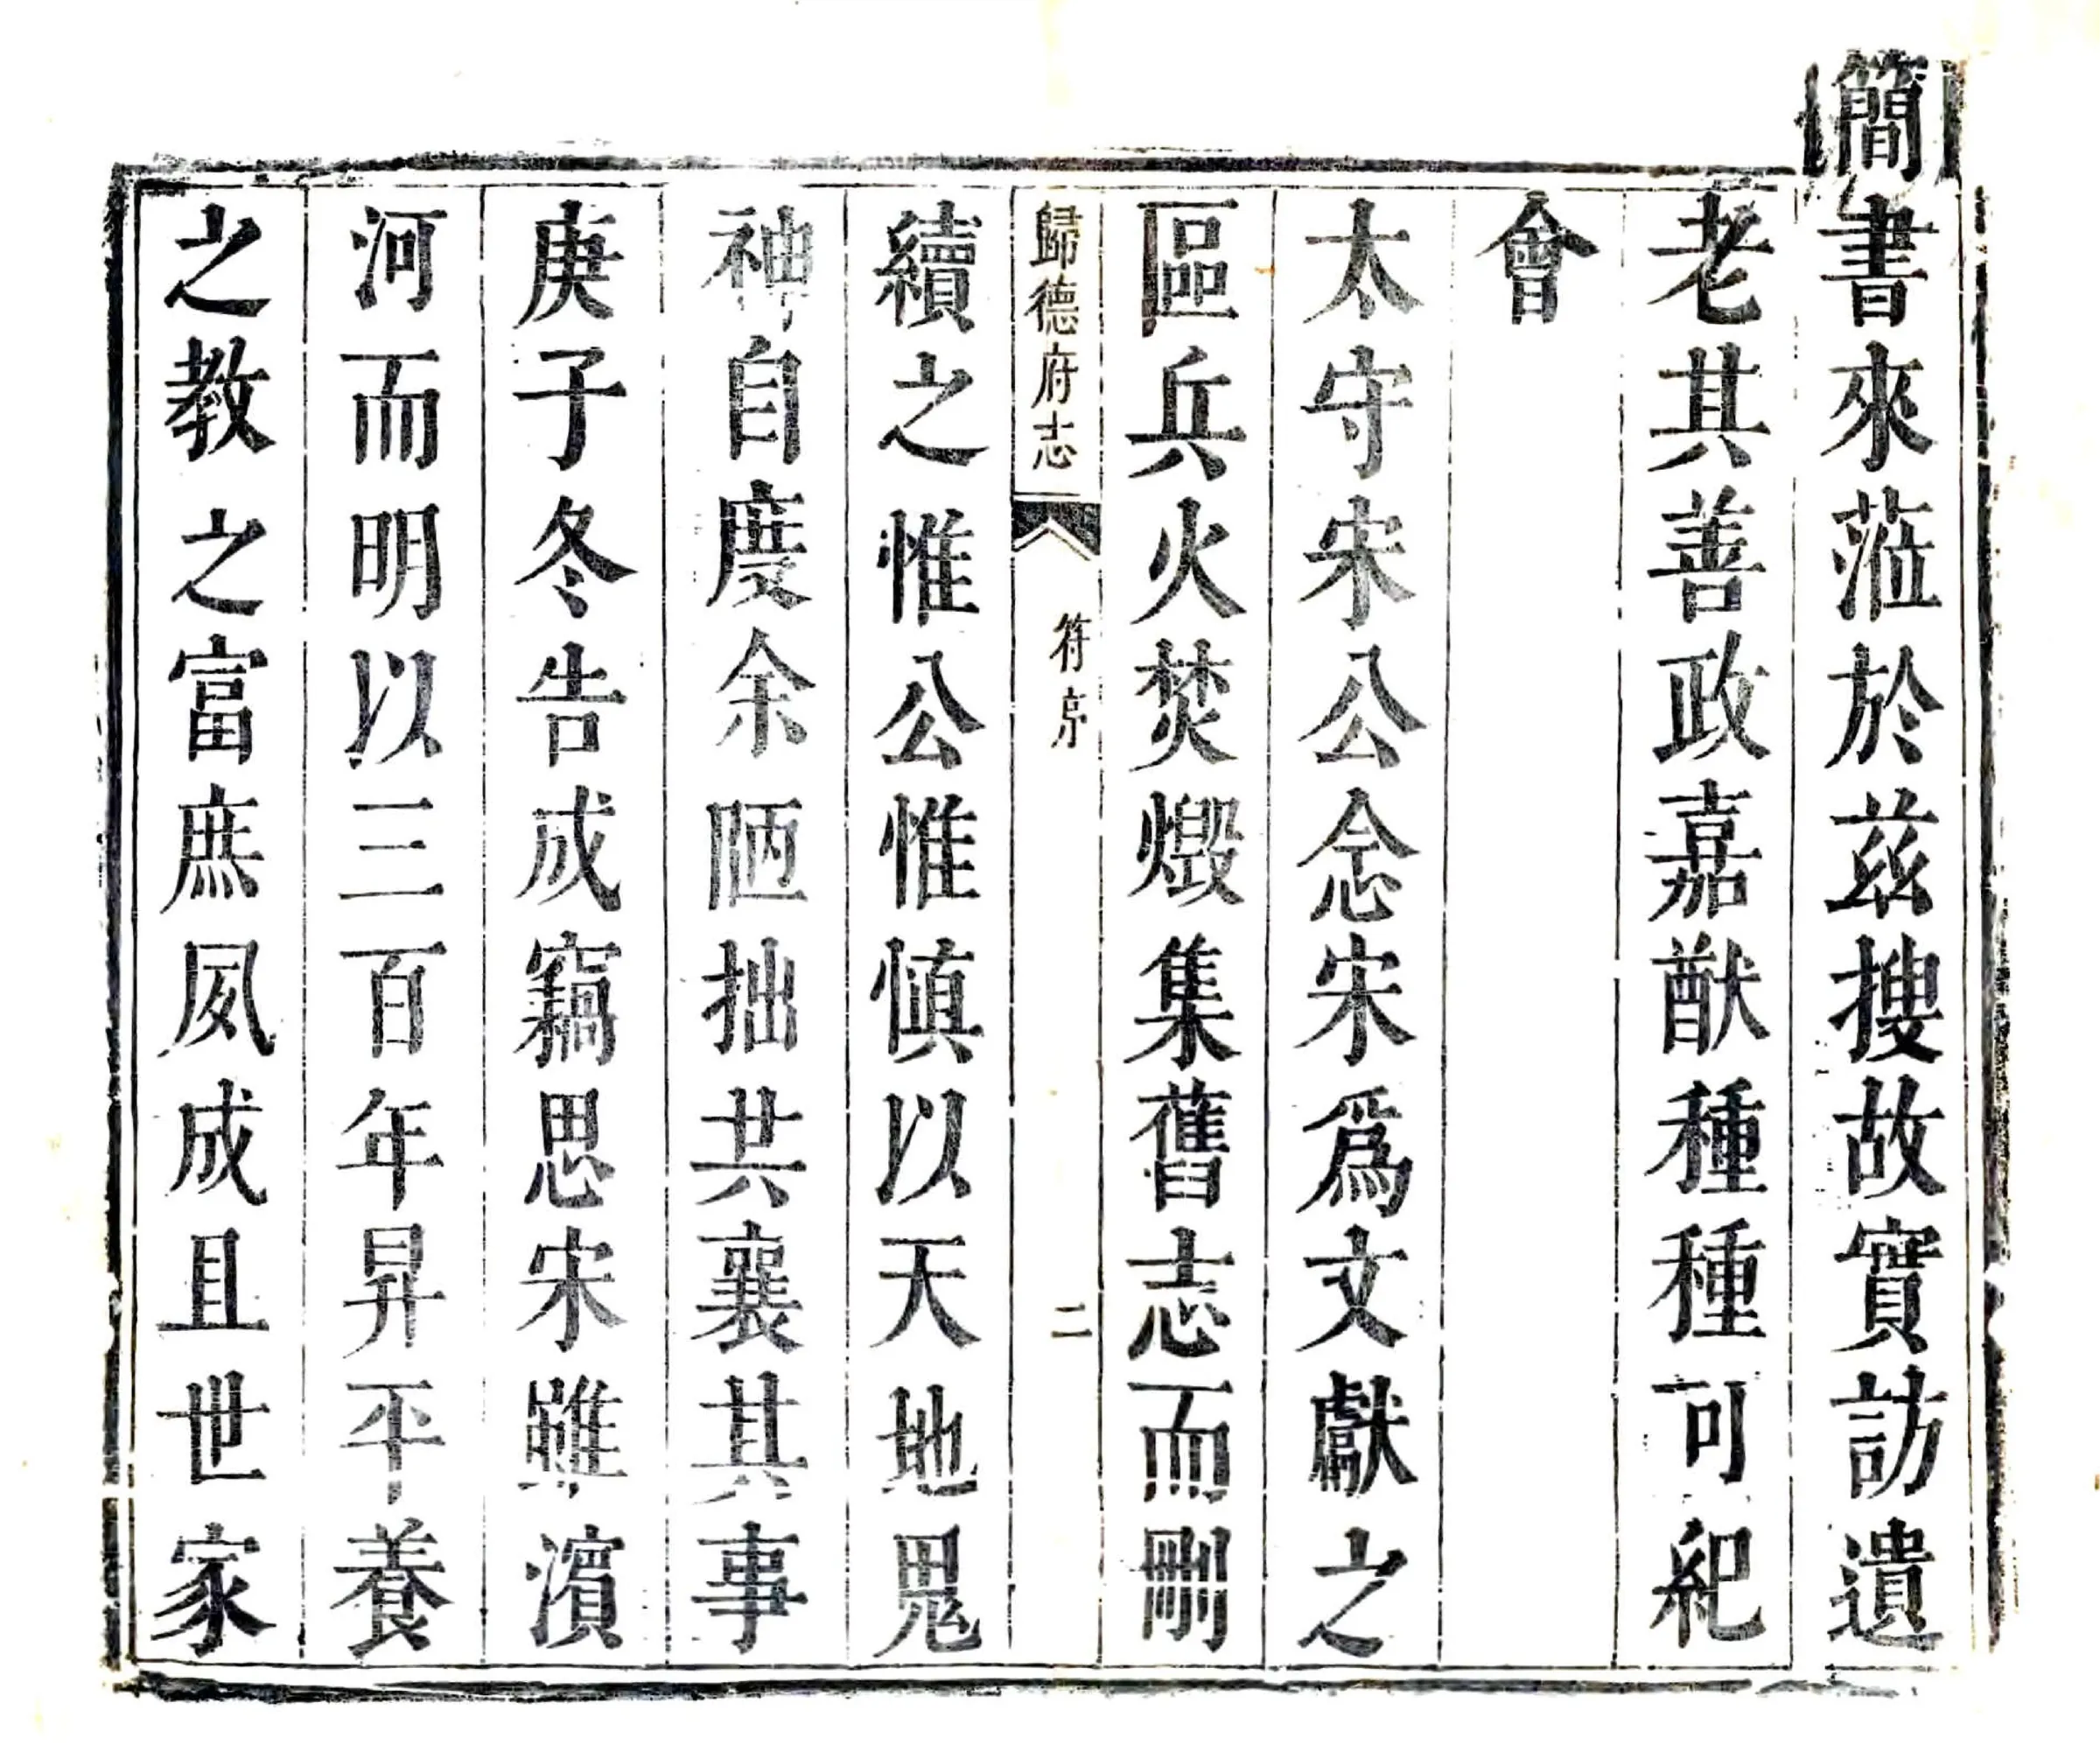 簡書來蒞於茲搜故實訪遺
老其善政嘉猷種種可紀
會
太守宋公念宋爲文獻之
區兵火焚燬集舊志而刪
歸德府志
符序
二
續之惟公惟愼以天地鬼
神自度余陋拙共襄其事
庚子冬告成竊思宋雖濱
河而明以三百年昇平養
之教之富庶夙成且世家